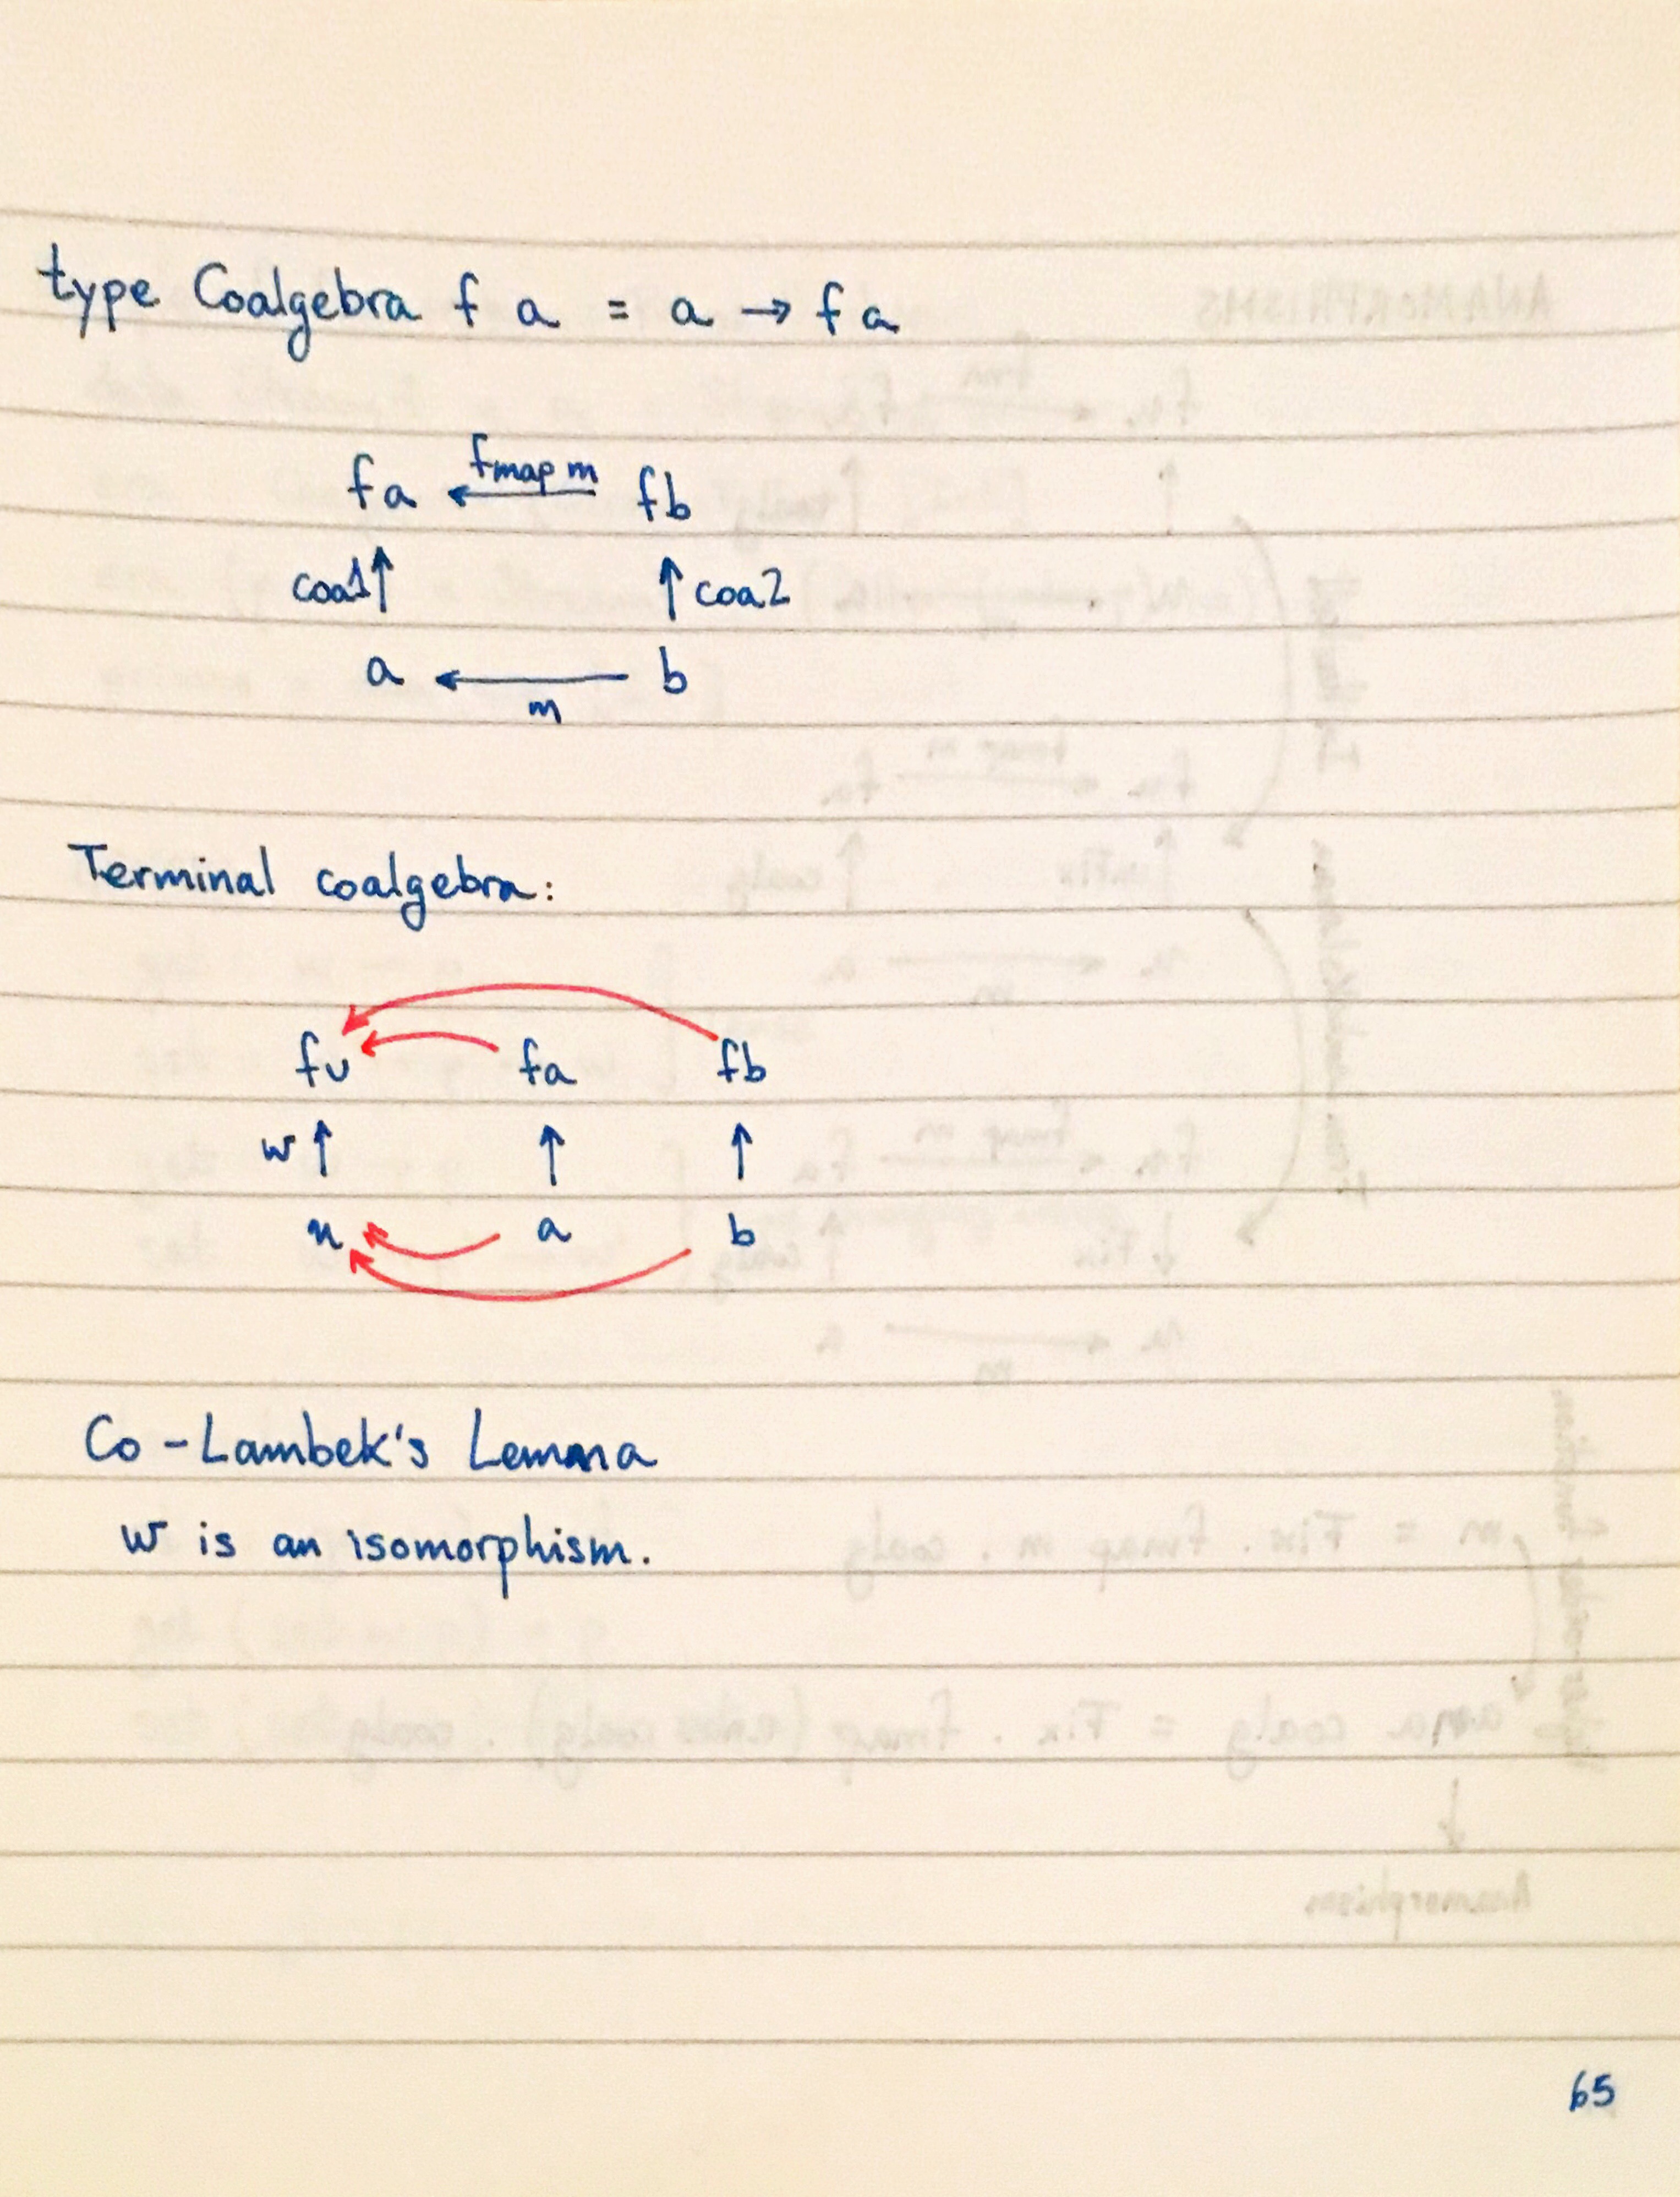 type Coalgebra f a = a → f a
fa ← fmap m fb
coa1 ↑ ↑ coa2
a ← m b
Terminal coalgebra:
fu fa fb
w ↑ ↑ ↑
u a b
Co-Lambek's Lemma
w is an isomorphism.
65